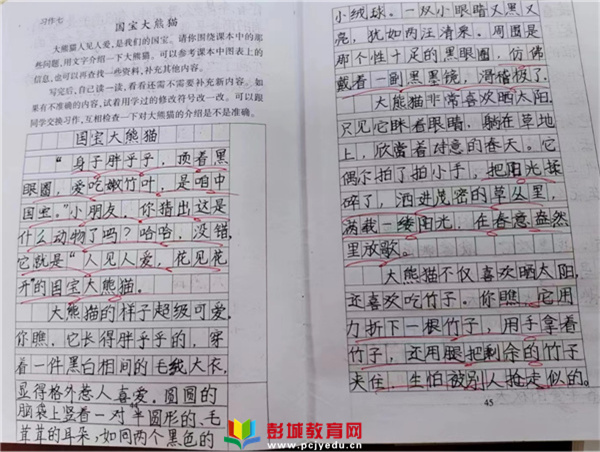 习作七
国宝大熊猫
大熊猫人见人爱,是我们的国宝。请你围绕课本中的那
些问题,用文字介绍一下大熊猫。可以参考课本中图表上的
信息,也可以再查找一些资料,补充其他内容。
写完后,自己读一读,看看还需不需要补充新内容。如
果有不准确的内容,试着用学过的修改符号改一改。可以跟
同学交换习作,互相检查一下对大熊猫的介绍是不是准确。
国宝大熊猫
“身子胖乎乎,顶着黑
眼圈,爱吃嫩竹叶,是咱中
国宝。”小朋友,你猜出这是
什么动物了吗?哈哈,没错,
它就是“人见人爱,花见花
开”的国宝大熊猫。
大熊猫的样子超级可爱,
你瞧,它长得胖乎乎的,穿
着一件黑白相间的毛绒大衣,
显得格外惹人喜爱,圆圆的
脑袋上竖着一对半圆形的、毛
茸茸的耳朵,如同两个黑色的
小绒球。一双小眼睛又黑又
亮,犹如两汪清来。周围是
那个性十足的黑眼圈,仿佛
戴着一副黑墨镜,滑稽极了。
大熊猫非常喜欢晒太阳,
只见它眯着眼睛,躺在草地
上,欣赏着对意的春天。它
偶尔拍了拍小手,把阳光揉
碎了,洒进茂密的草丛里,
满载一缕阳光,在春意盎然
里放歌。
大熊猫不仅喜欢晒太阳,
还喜欢吃竹子。你瞧,它用
力折下一根竹子,用手拿着
竹子,还用腿把剩余的竹子
夹住,生怕被别人抢走似的。
45
彭城教育网
www.pcjyedu.cn